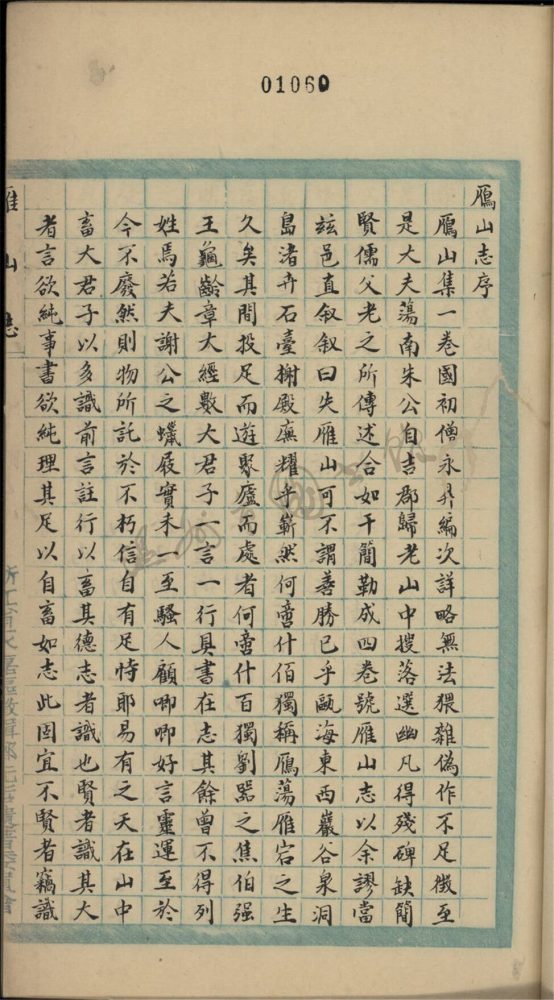 01060
鴈山志序
鴈山集一卷國初僧永昇編次詳略無法猥雜偽作不足徵至
是大夫蕩南朱公自吉郡歸老山中搜落選幽凡得殘碑缺簡
賢儒父老之所傳述合如干簡勒成四卷號雁山志以余謬當
玆邑直叙叙曰失雁山可不謂善勝已乎甌海東西巖谷泉洞
島渚卉石臺榭殿廡耀乎嶄然何啻什佰獨稱鴈蕩雁宕之生
久矣其間投足而遊聚廬而處者何啻什百獨劉器之焦伯强
王龜齡章大經數大君子一言一行具書在志其餘曾不得列
姓焉若夫謝公之蠟屐實未一至騷人顧唧唧好言靈運至於
今不廢然則物所託於不朽信自有足恃耶易有之天在山中
畜大君子以多識前言註行以畜其德志者識也賢者識其大
者言欲純事書欲純理其足以自畜如志此固宜不賢者竊識
雁山志